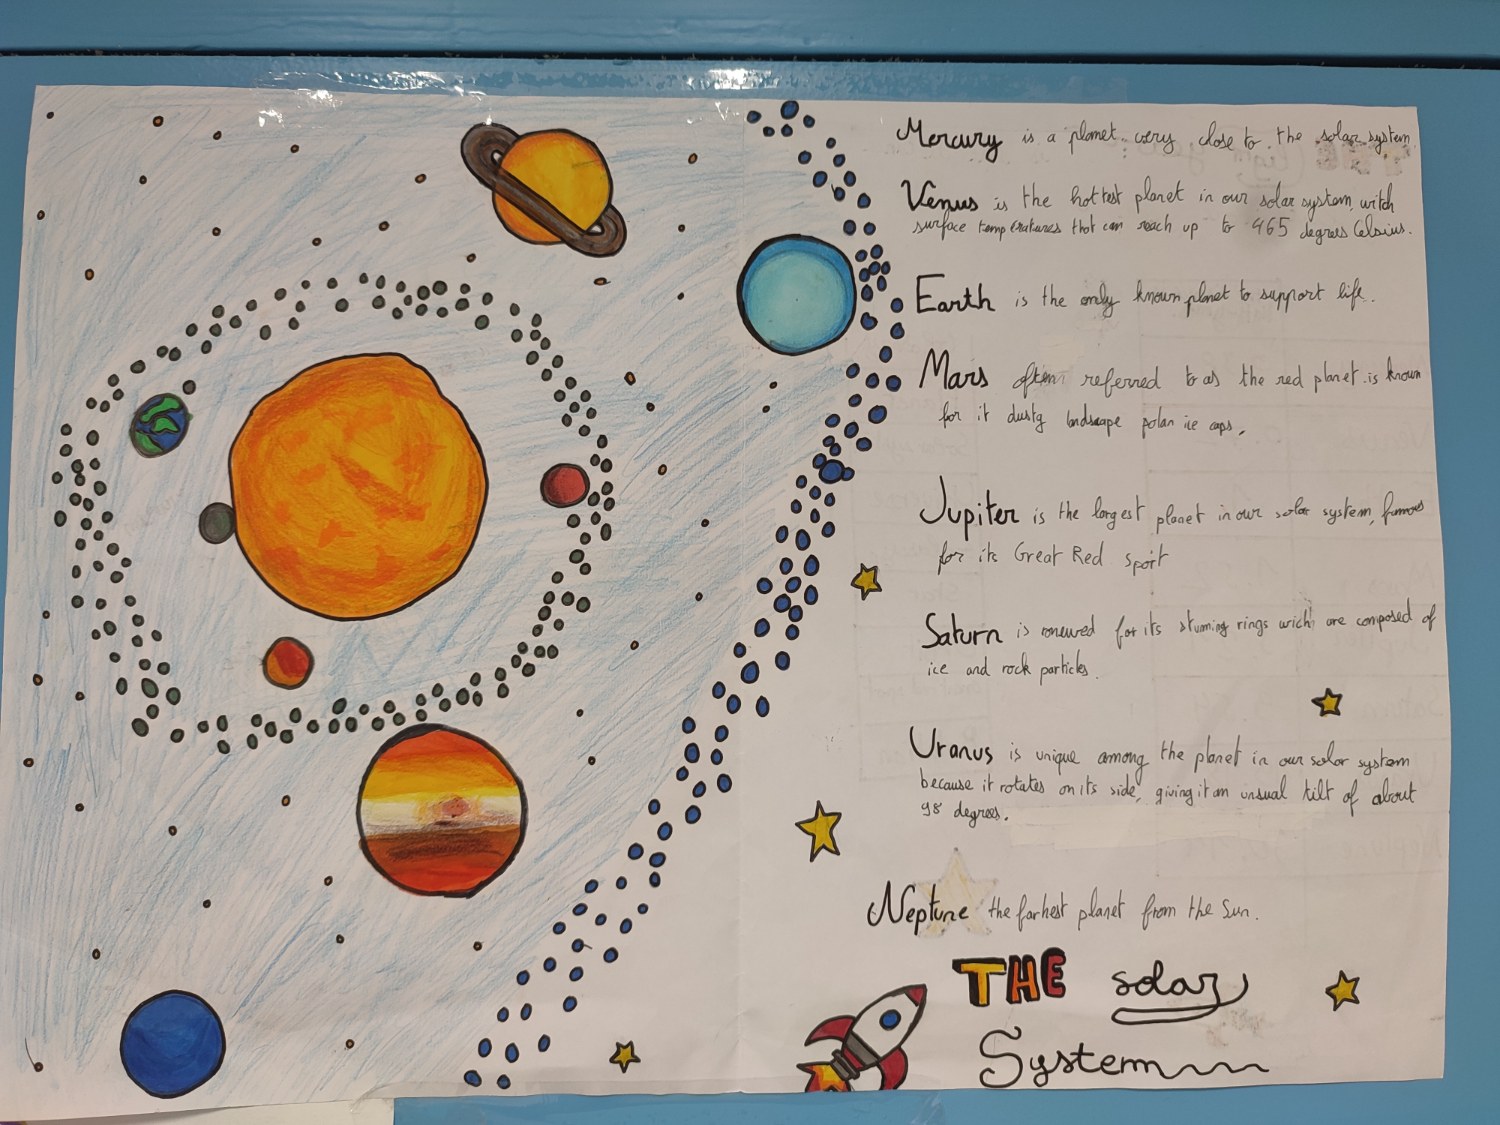 Mercury is a planet very close to the solar system
Venus is the hottest planet in our solar system, witch
surface temperatures that can reach up to 465 degrees Celsius.
Earth is the only known planet to support life.
Mars often referred to as the red planet is known
for it dusty landscape polar ice caps.
Jupiter is the largest planet in our solar system, famous
for its Great Red Sport
Saturn is renewed for its stunning rings wich are composed of
ice and rock particles.
Uranus is unique among the planet in our solar system
because it rotates on its side, giving it an unsual tilt of about
98 degrees.
Neptune the farhest planet from the Sun.
THE solar
System